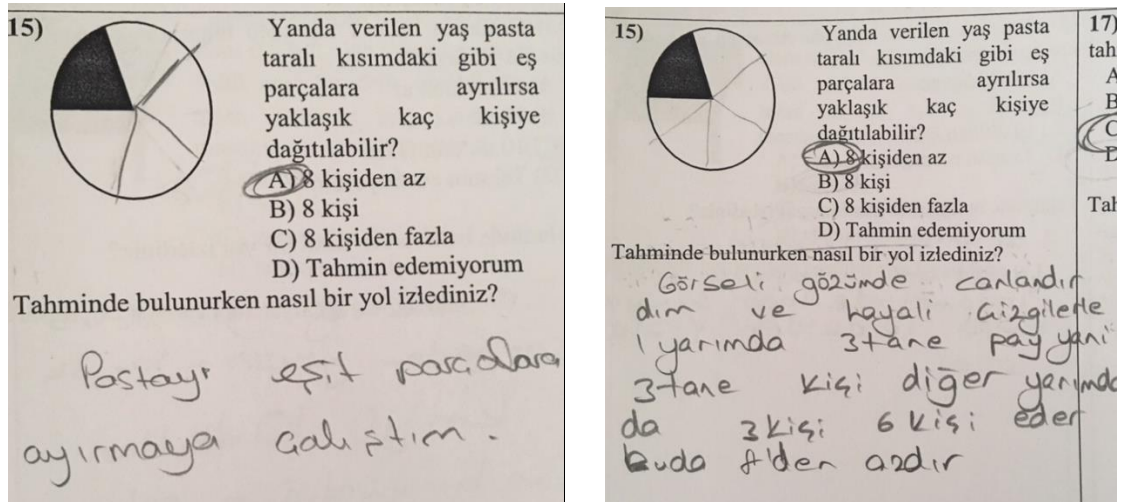 15)
Yanda verilen yaş pasta
taralı kısımdaki gibi eş
parçalara ayrılırsa
yaklaşık kaç kişiye
dağıtılabilir?
A) 8 kişiden az
B) 8 kişi
C) 8 kişiden fazla
D) Tahmin edemiyorum
Tahminde bulunurken nasıl bir yol izlediniz?
Pastayı eşit parçalara
ayırmaya çalıştım.
15)
Yanda verilen yaş pasta
taralı kısımdaki gibi eş
parçalara ayrılırsa
yaklaşık kaç kişiye
dağıtılabilir?
A) 8 kişiden az
B) 8 kişi
C) 8 kişiden fazla
D) Tahmin edemiyorum
Tahminde bulunurken nasıl bir yol izlediniz?
Görseli gözümde canlandır
dım ve hayali çizgilerle
1 yarımda 3 tane pay yani
3 tane kişi diğer yarımda
da 3 kişi 6 kişi eder
buda 8'den azdır
17)
tah
A
B
C
Tah